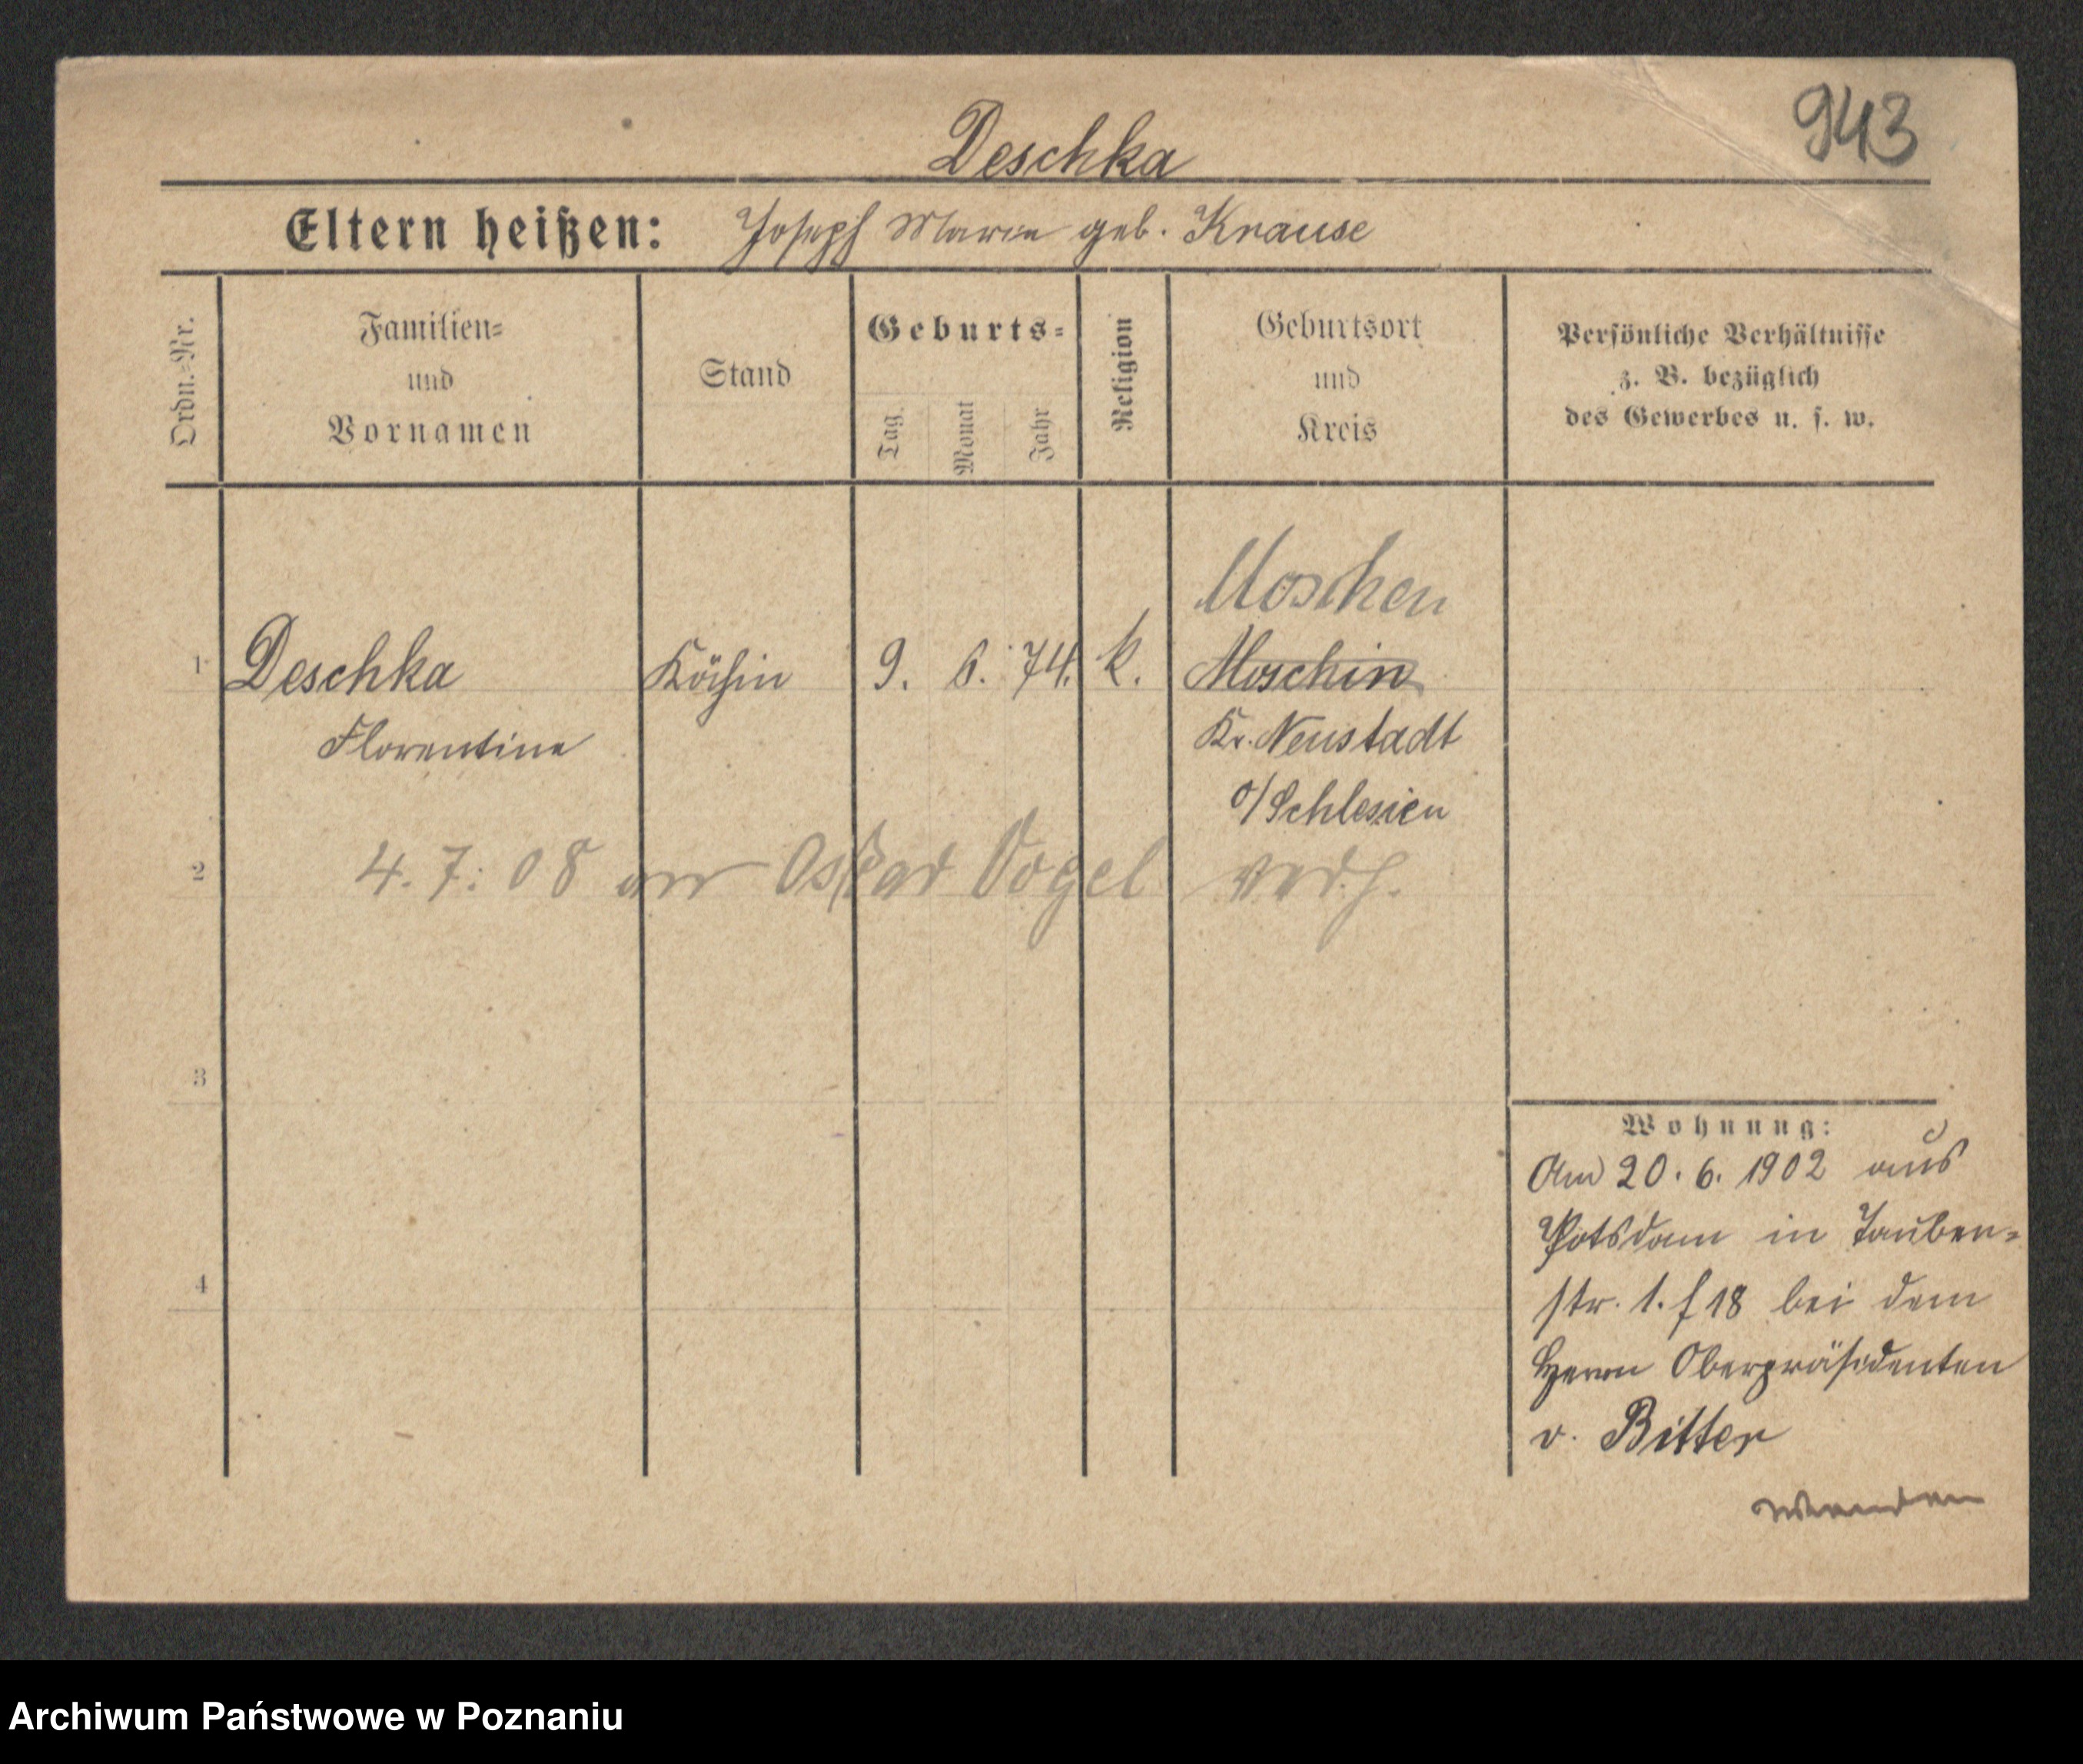 943
Deschka
Eltern heißen: Joseph Marie geb. Krause
Ordn.-Nr.
Familien-
und
Vornamen
Stand
Geburts-
Tag
Monat
Jahr
Religion
Geburtsort
und
Kreis
Persönliche Verhältnisse
z. B. bezüglich
des Gewerbes u. s. w.
Moschen
1 Deschka Köchin 9. 6. 74. k. Moschin
Florentine Kr. Neustadt
o/Schlesien
2 4. 7. 08 an Oskar Vogel verh.
3
4
Wohnung:
Am 20. 6. 1902 aus
Potsdam in Tauben-
str. 1. f 18 bei dem
Herrn Oberpräsidenten
v. Bitter
wenden
Archiwum Państwowe w Poznaniu